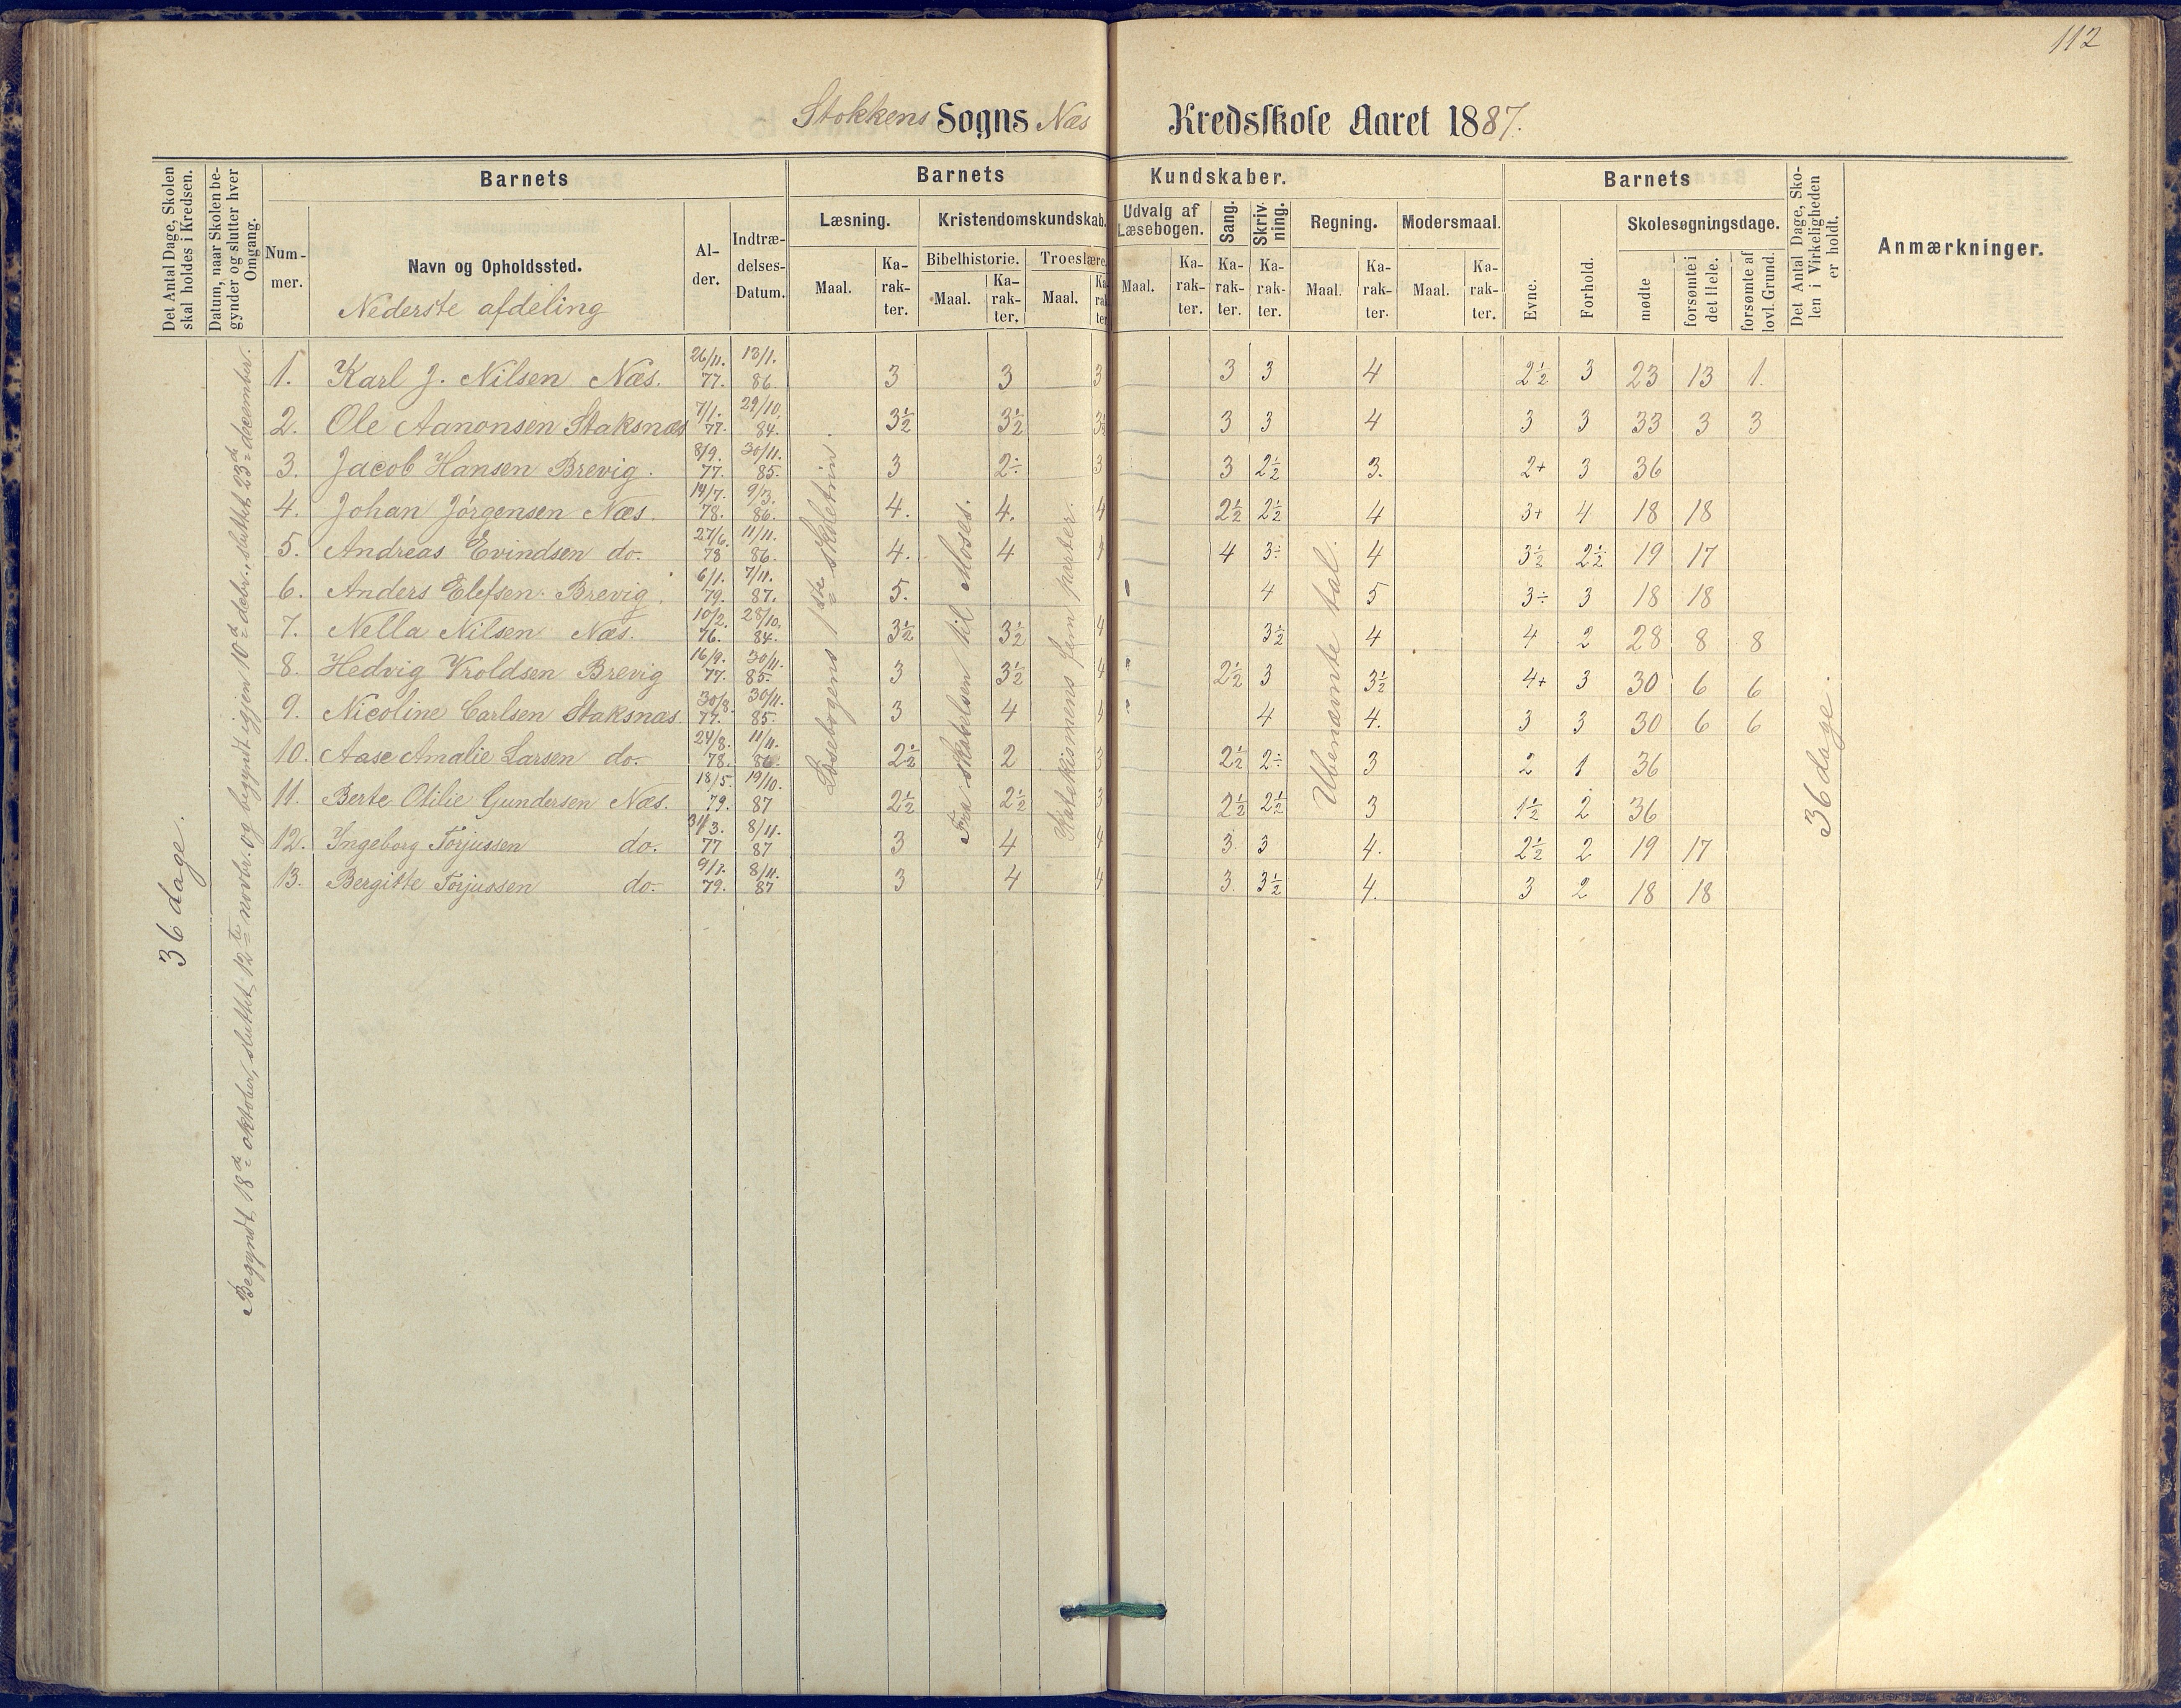 112
Stokkens Sogns Næs Kredsskole Aaret 1887.
Det Antal Dage, Skolen skal holdes i Kredsen.
Datum, naar Skolen begynder og slutter hver Omgang.
Barnets
Nummer.
Navn og Opholdssted.
Nederste afdeling
Alder.
Indtrædelses-Datum.
Barnets Kundskaber.
Læsning.
Maal. Karakter.
Kristendomskundskab.
Bibelhistorie. Troeslære.
Maal. Karakter. Maal. Karakter.
Udvalg af Læsebogen.
Maal. Karakter.
Sang. Karakter.
Skrivning. Karakter.
Regning.
Maal. Karakter.
Modersmaal.
Maal. Karakter.
Barnets
Evne. Forhold.
Skolesøgningsdage.
mødte forsømte i det Hele. forsømte af lovl. Grund.
Det Antal Dage, Skolen i Virkeligheden er holdt.
Anmærkninger.
36 dage.
Begyndt 18de oktober, sluttet 12te novbr. og begyndt igjen 10d debr., sluttet 23de december.
1. Karl J. Nilsen Næs. 26/11. 77. 13/1. 86. 3 3 3 3 3 4 2½ 3 23 13 1.
2. Ole Aanonsen Staksnæs 7/1. 77. 29/10. 84. 3½ 3½ 3½ 3 3 4 3 3 33 3 3
3. Jacob Hansen Brevig. 8/9. 77. 30/11. 85. 3 2÷ 3 3 2½ 3. 2+ 3 36
4. Johan Jørgensen Næs. 14/7. 78. 9/3. 86. 4. 4. 4 2½ 2½ 4 3+ 4 18 18
5. Andreas Evindsen do. 27/6. 78 11/11. 86. 4. 4 4 4 3÷ 4 3½ 2½ 19 17
6. Anders Elefsen Brevig. 6/1. 79. 7/11. 87. 5. 4 5 3÷ 3 18 18
7. Nella Nilsen Næs. 10/2. 76. 28/10. 84. 3½ 3½ 4 3½ 4 4 2 28 8 8
8. Hedvig Vroldsen Brevig 16/9. 77. 30/11. 85. 3 3½ 4 2½ 3 3½ 4+ 3 30 6 6
9. Nicoline Carlsen Staksnæs. 30/8. 77. 30/11. 85. 3 4 4 4 4. 3 3 30 6 6
10. Aase Amalie Larsen do. 24/8. 78. 11/11. 86. 2½ 2 3 2½ 2÷ 3 2 1 36
11. Berte Otilie Gundersen Næs. 18/5. 79. 19/10. 87 2½ 2½ 3 2½ 2½ 3 1½ 2 36
12. Ingeborg Torjussen do. 31/3. 77 8/11. 87 3 4 4 3. 3 4. 2½ 2 19 17
13. Bergitte Torjussen do. 79. 8/11. 87 3 4 4 3. 3½ 4. 3 2 18 18
Læsebogens 1ste skoletrin.
Fra skabelsen til Moses.
Katekismens fem parter.
Ubenævnte tal.
36 dage.